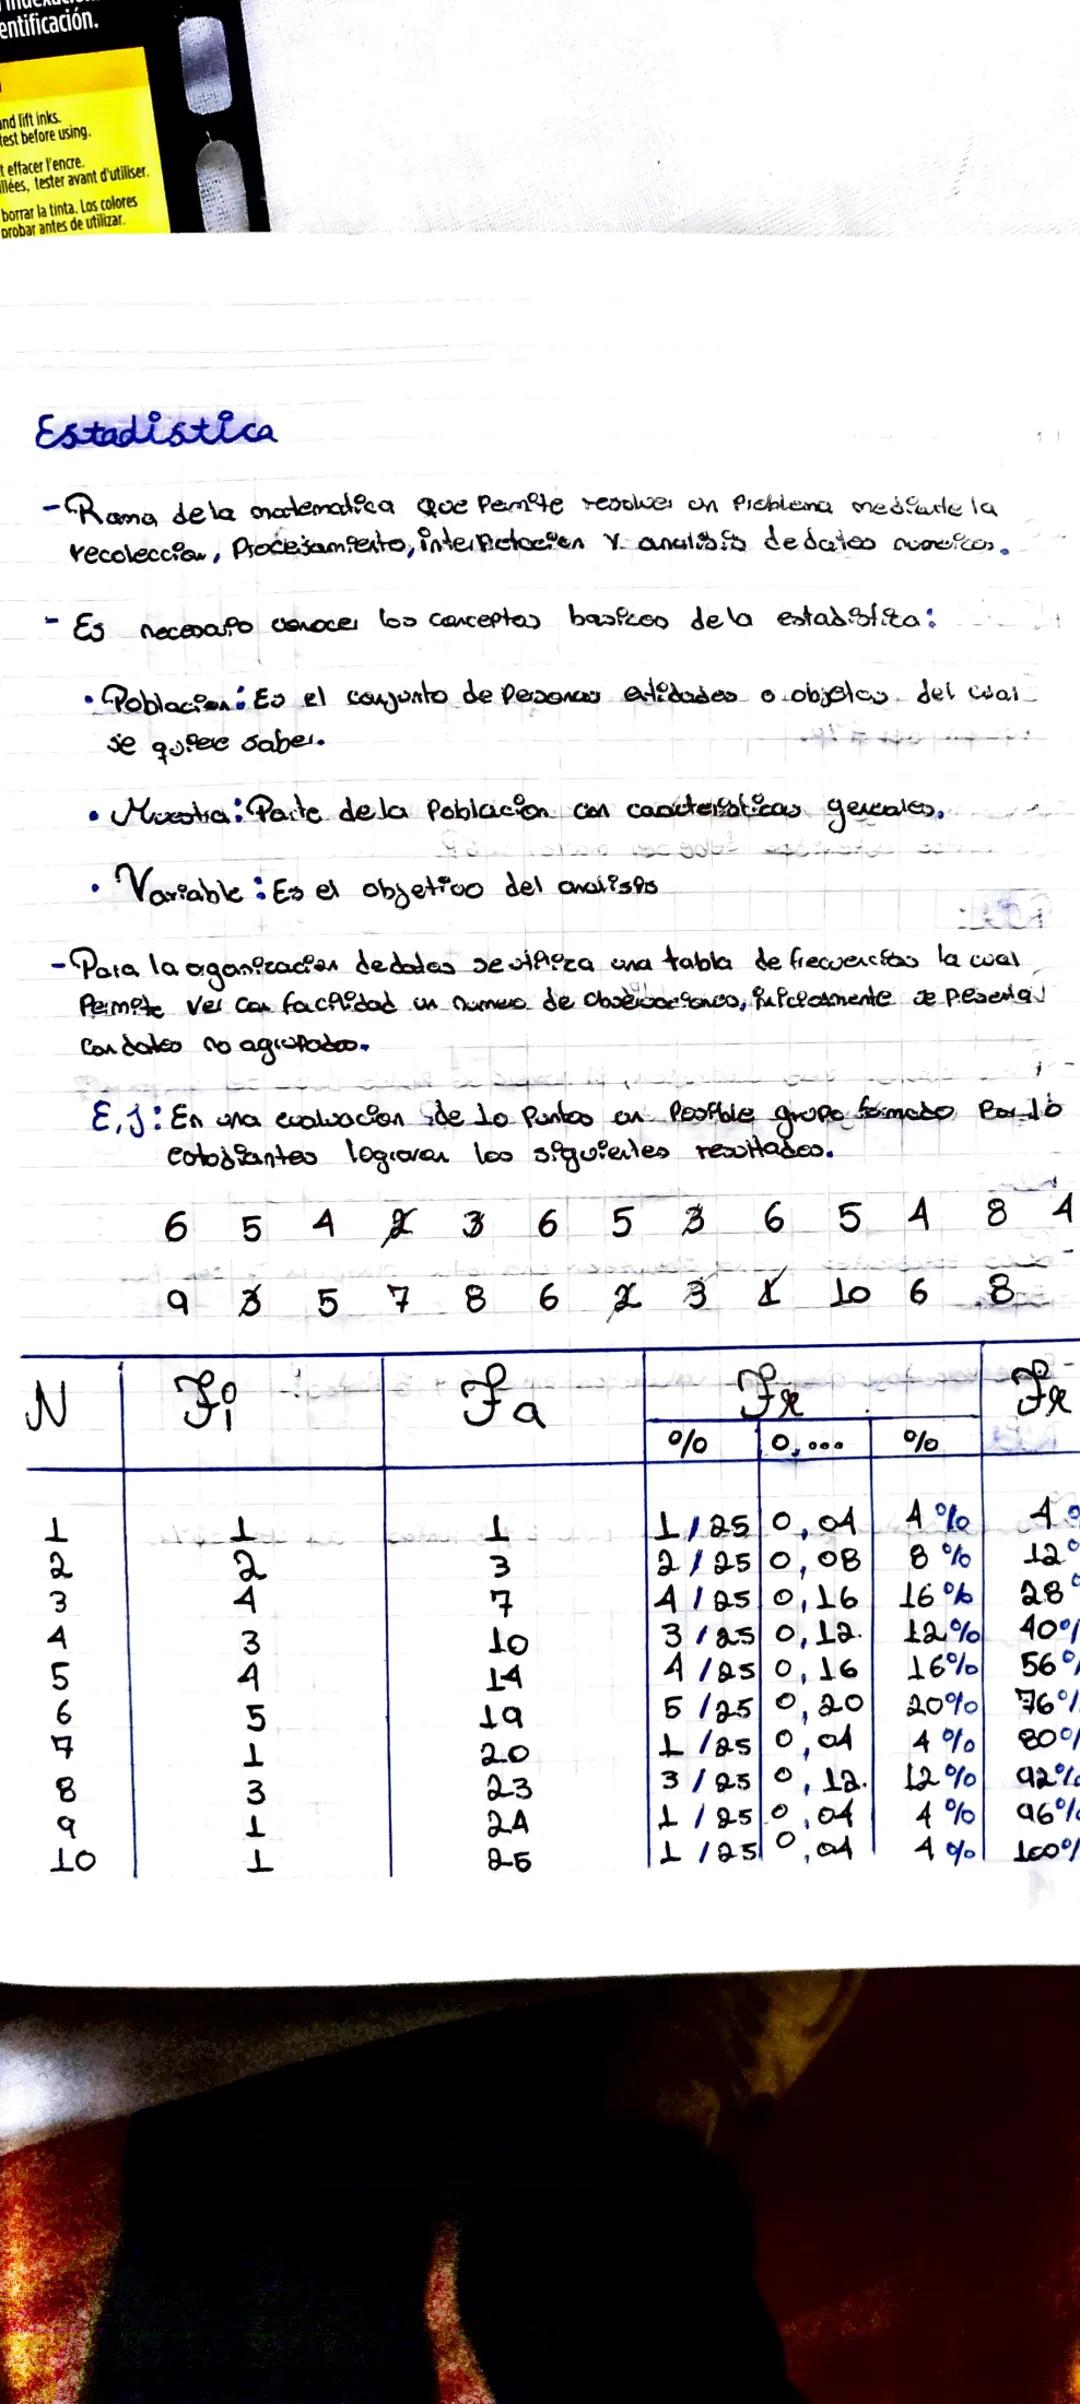 entificación.
and lift inks.
test before using.
t effacer l'encre.
illées, tester avant d'utiliser.
borrar la tinta. Los colores
probar antes de utilizar.
Estadistica
- Rama de la matematica que Permite resolver un Problema mediante la
recoleccion, Procesamiento, interpretacion y analisis de datos numericos.
- Es necesario conocer los conceptos basicos de la estadistica:
• Poblacion: Es el conjunto de Personas entidades o objetos del cual
se quiere saber.
• Muestra: Parte de la Poblacion con caracteristicas generales.
• Variable: Es el objetivo del analisis
- Para la organizacion de datos se utiliza una tabla de frecuencias la cual
Permite ver con facilidad un numero de Observaciones, inicialmente se Presenta
con datos no agrupados.
E,J: En una evaluacion de 10 Puntos un Posible grupo formado Por
estudiantes lograron los siguientes resultados.
6 5 4 2 3 6 5 3 6 5 4 8 4
9 3 5 7 8 6 2 3 1 10 6 8
N Fi Fa Fr Fr
% 0,... %
1 1 1 1/25 0,04 4% 4%
2 2 3 2/25 0,08 8% 12%
3 4 7 4/25 0,16 16% 28%
4 3 10 3/25 0,12. 12% 40%
5 4 14 4/25 0,16 16% 56%
6 5 19 5/25 0,20 20% 76%
7 1 20 1/25 0,04 4% 80%
8 3 23 3/25 0,12. 12% 92%
9 1 24 1/25 0,04 4% 96%
10 1 25 1/25 0,04 4% 100%